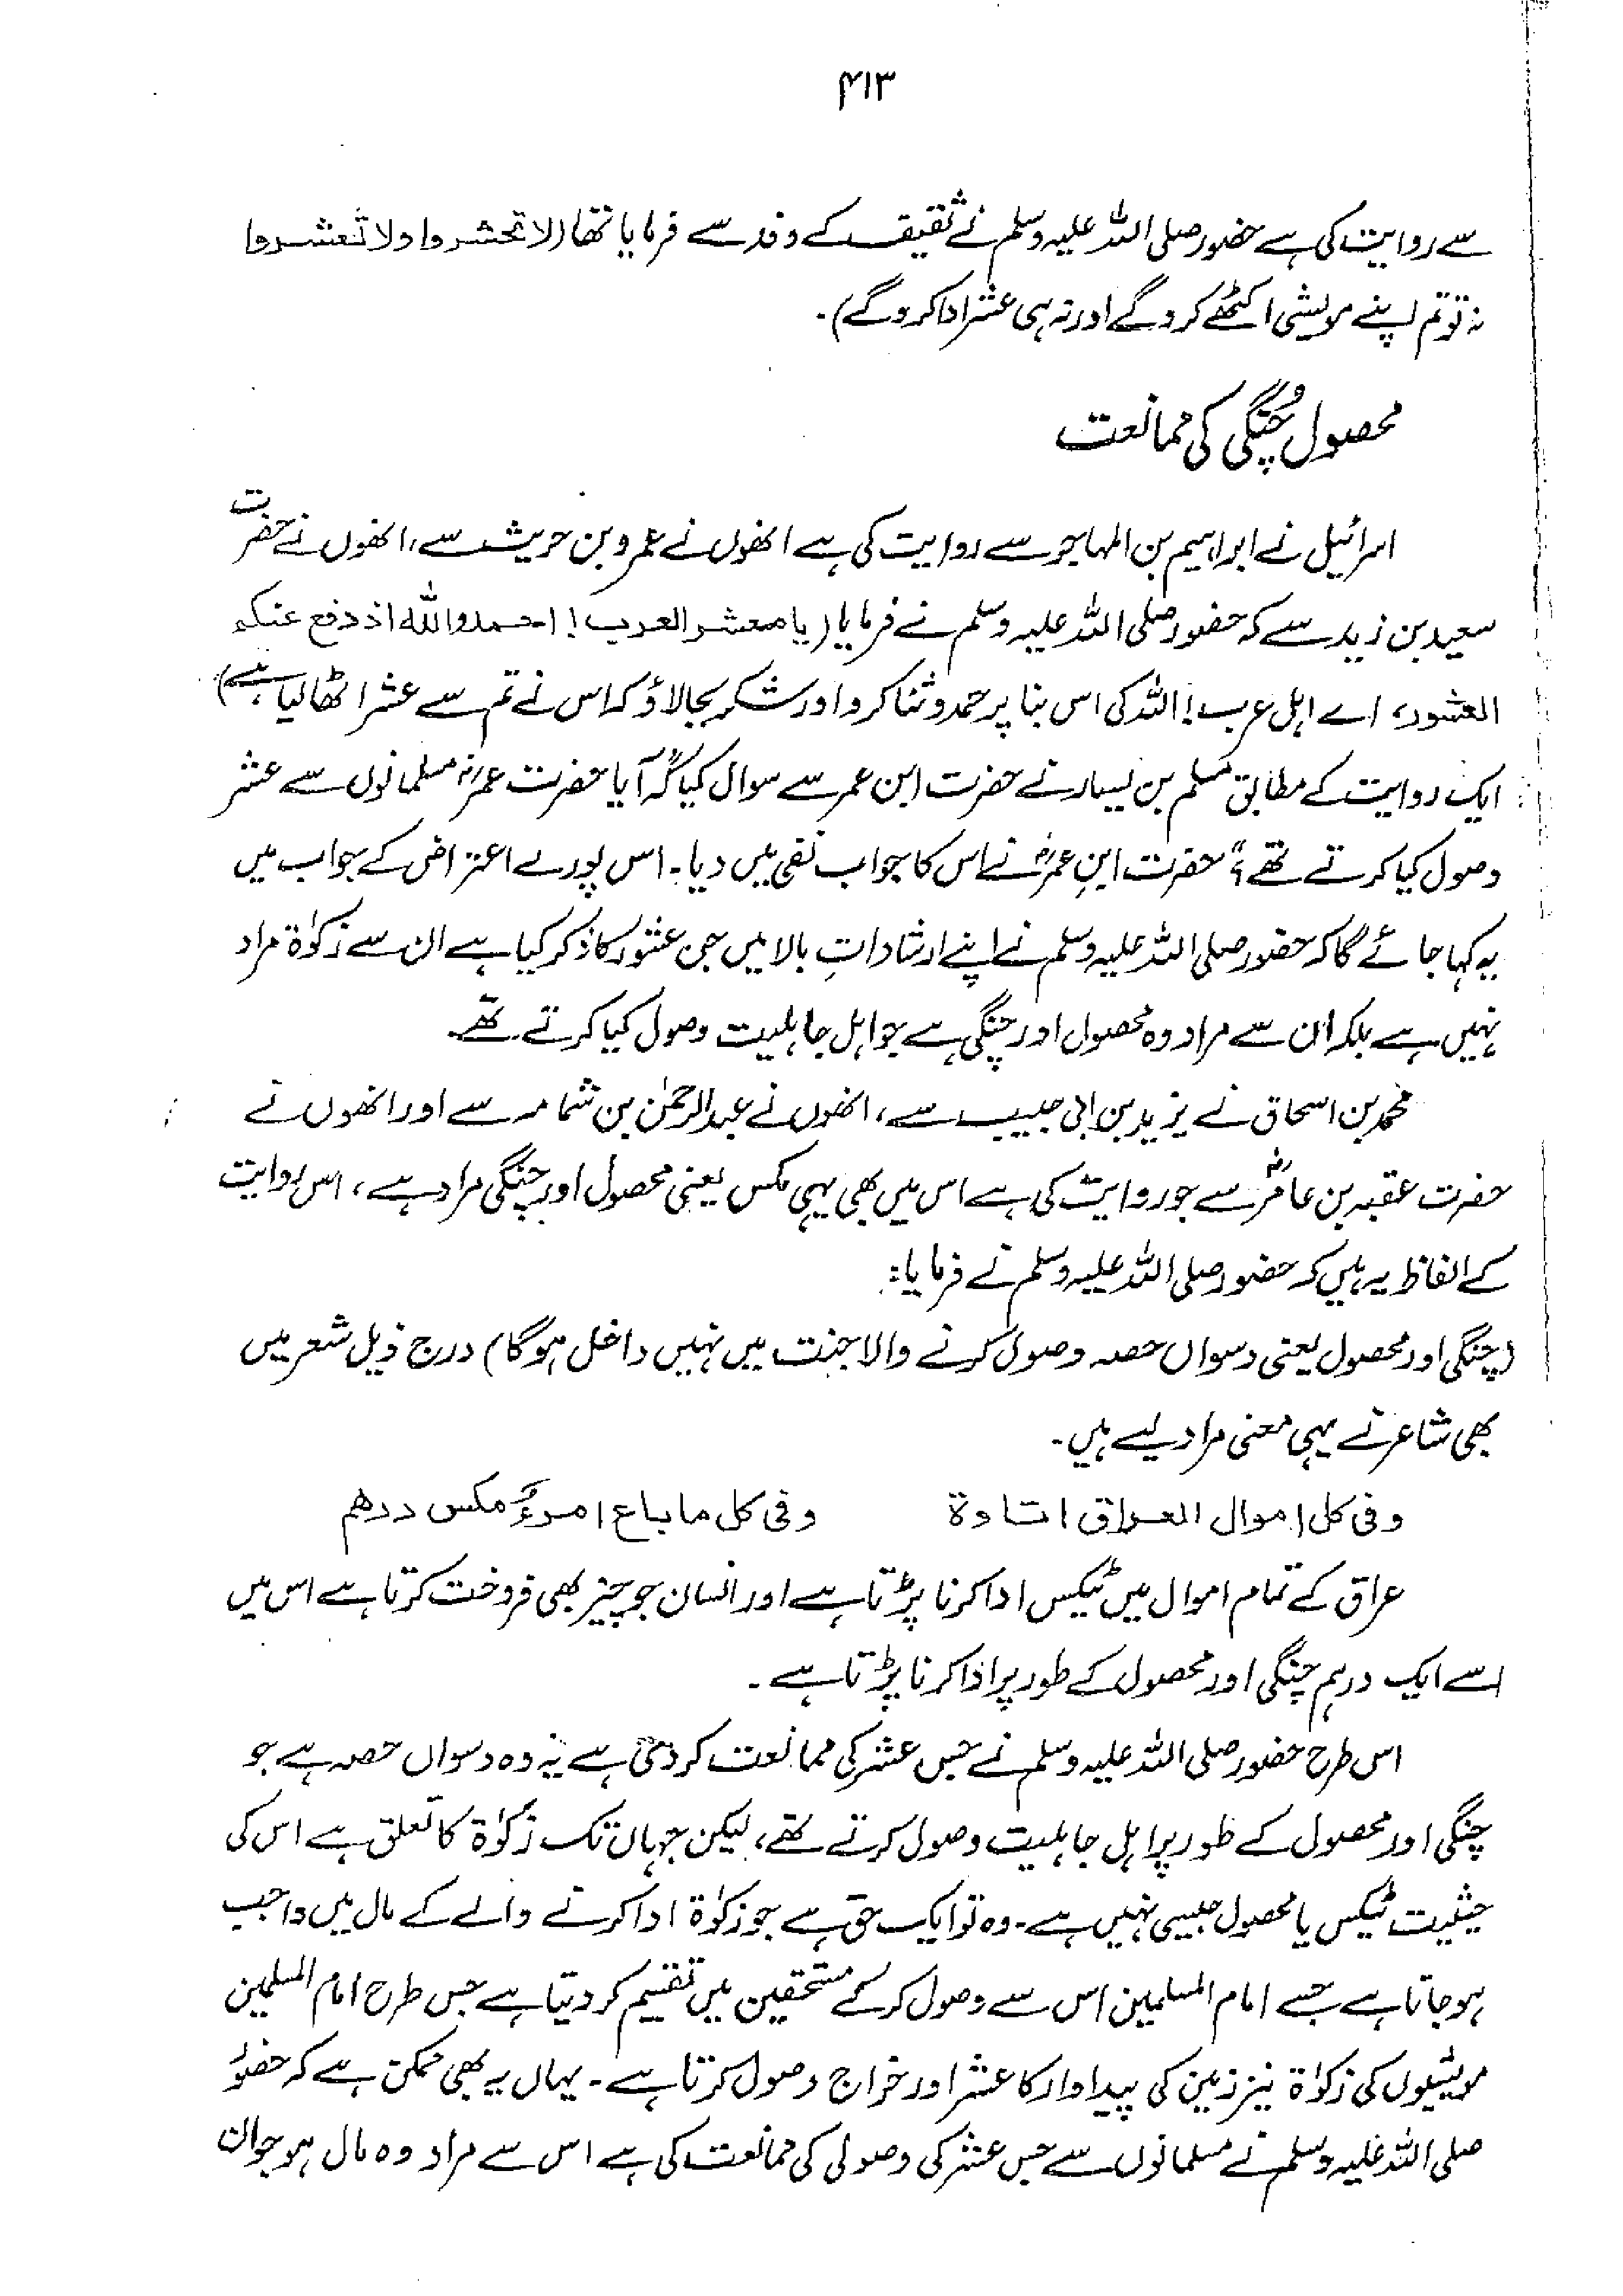 ۴۱۳
سے روایت کی ہے حضور صلی اللہ علیہ وسلم نے ثقیف کے وفد سے فرمایا تھا (لا تحشروا ولا تعشروا
نہ تو تم اپنے مویشی اکٹھے کرو گے اور نہ ہی عشر ادا کرو گے)۔
محصول چُنگی کی ممانعت
اسرائیل نے ابراہیم بن المہاجر سے روایت کی ہے انھوں نے عمرو بن حریث سے، انھوں نے حضرت
سعید بن زید سے کہ حضور صلی اللہ علیہ وسلم نے فرمایا (یا معشر العرب! احمدوا اللہ اذ دفع عنکم
العشور، اے اہل عرب! اللہ کی اس بنا پر حمد و ثنا کرو اور شکر بجا لاؤ کہ اس نے تم سے عشر اٹھا لیا ہے)
ایک روایت کے مطابق مسلم بن یسار نے حضرت ابن عمر سے سوال کیا کہ "آیا حضرت عمرؓ مسلمانوں سے عشر
وصول کیا کرتے تھے؟" حضرت ابنِ عمرؓ نے اس کا جواب نفی میں دیا۔ اس پورے اعتراض کے جواب میں
یہ کہا جائے گا کہ حضور صلی اللہ علیہ وسلم نے اپنے ارشاداتِ بالا میں جن عشور کا ذکر کیا ہے ان سے زکوٰۃ مراد
نہیں ہے بلکہ ان سے مراد وہ محصول اور چنگی ہے جو اہل جاہلیت وصول کیا کرتے تھے۔
محمد بن اسحاق نے یزید بن ابی حبیب سے، انھوں نے عبدالرحمٰن بن شماسہ سے اور انھوں نے
حضرت عقبہ بن عامرؓ سے جو روایت کی ہے اس میں بھی یہی مکس یعنی محصول اور چنگی مراد ہے، اس روایت
کے الفاظ یہ ہیں کہ حضور صلی اللہ علیہ وسلم نے فرمایا:
(چنگی اور محصول یعنی دسواں حصہ وصول کرنے والا جنت میں نہیں داخل ہوگا) درج ذیل شعر میں
بھی شاعر نے یہی معنی مراد لیے ہیں۔
وفی کل اموال العراق اتاوة وفی کل ما باع امرؤ مکس درھم
عراق کے تمام اموال میں ٹیکس ادا کرنا پڑتا ہے اور انسان جو چیز بھی فروخت کرتا ہے اس میں
اسے ایک درہم چنگی اور محصول کے طور پر ادا کرنا پڑتا ہے۔
اس طرح حضور صلی اللہ علیہ وسلم نے جس عشر کی ممانعت کر دی ہے یہ وہ دسواں حصہ ہے جو
چنگی اور محصول کے طور پر اہل جاہلیت وصول کرتے تھے، لیکن جہاں تک زکوٰۃ کا تعلق ہے اس کی
حیثیت ٹیکس یا محصول جیسی نہیں ہے۔ وہ تو ایک حق ہے جو زکوٰۃ ادا کرنے والے کے مال میں واجب
ہو جاتا ہے جسے امام المسلمین اس سے وصول کر کے مستحقین میں تقسیم کر دیتا ہے جس طرح امام المسلمین
مویشیوں کی زکوٰۃ نیز زمین کی پیداوار کا عشر اور خراج وصول کرتا ہے۔ یہاں یہ بھی ممکن ہے کہ حضور
صلی اللہ علیہ وسلم نے مسلمانوں سے جس عشر کی وصولی کی ممانعت کی ہے اس سے مراد وہ مال ہو جو ان